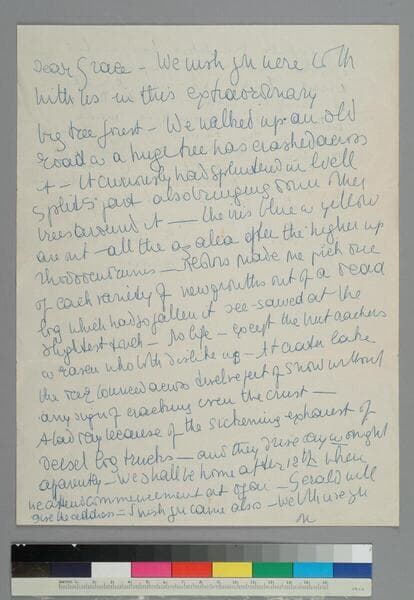 Dear Grace - We wish you were both
with us in this extraordinary
big tree forest - We walked up an old
road & a huge tree has crashed across
it - It curiously had splintered in well
split past also bringing down other
trees around it - the iris blue & yellow
are out - all the azalea after the higher up
rhododendrons - made me pick one
of each variety of new growths out of a dead
log which had so fallen it see-sawed at the
slightest touch - No life - except the nut hatchers
& raven who both dislike us - At Crater Lake
the bounced across twelve feet of snow without
any sign of cracking even the crust -
A bad day because of the sickening exhaust of
Diesel log trucks - and they drive day & night
apparently - We shall be home after 12th when
we attend commencement at - Gerald will
give the address - I wish you came also - We both
M